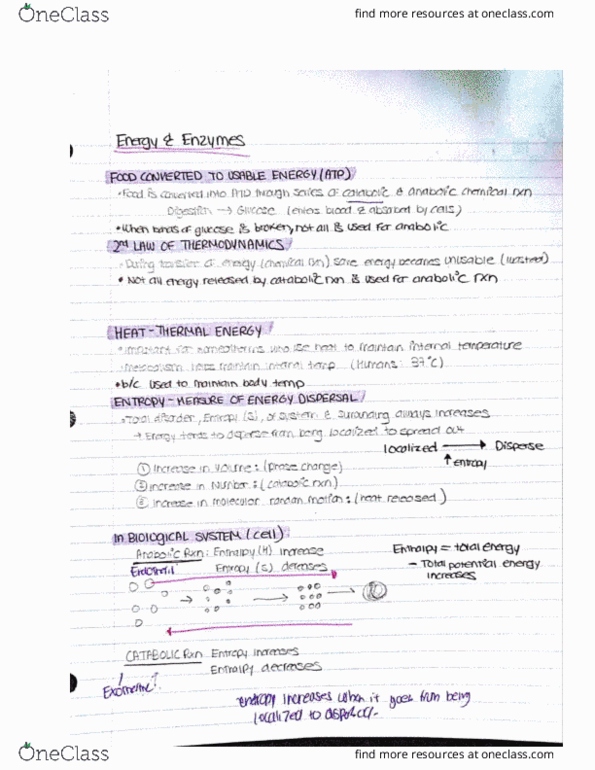 OneClass
find more resources at oneclass.com
Energy & Enzymes
FOOD CONVERTED TO USABLE ENERGY (ATP)
• Food is converted into through series of catabolic & anabolic chemical rxn
Digestion → Glucose (enters blood & absorbed by cells)
• When bonds of glucose is broken, not all is used for anabolic
2nd LAW OF THERMODYNAMICS
- During transfer of energy (chemical rxn) some energy becomes unusable (wasted)
• Not all energy released by catabolic rxn is used for anabolic rxn
HEAT - THERMAL ENERGY
• important for homeotherms who use heat to maintain internal temperature
• Metabolism helps maintain internal temp (Humans: 37°C)
• b/c used to maintain body temp
ENTROPY - MEASURE OF ENERGY DISPERSAL
• Total disorder, Entropy (S), of system & surounding always increases
→ Energy tends to disperse from being localized to spread out
localized → Disperse
↑ entropy
① Increase in volume: (phase change)
② increase in Number: (catabolic rxn)
③ increase in molecular random motion: (heat released)
In BIOLOGICAL SYSTEM (cell):
Anabolic Rxn: Enthalpy (H) increase
Entropy (S) decreases
Enthalpy = total energy
- Total potential energy
increases
CATABOLIC Rxn Entropy increases
Enthalpy decreases
entropy increases when it goes from being
localized to
OneClass
find more resources at oneclass.com